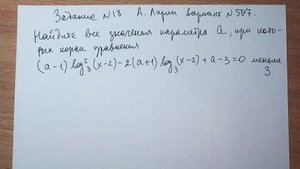 Задание №18 А. Ларин вариант №307.
Найдите все значения параметра a, при кото-
рых корни уравнения
(a-1) log₃²(x-2) - 2(a+1) log₃(x-2) + a - 3 = 0 меньше
3.